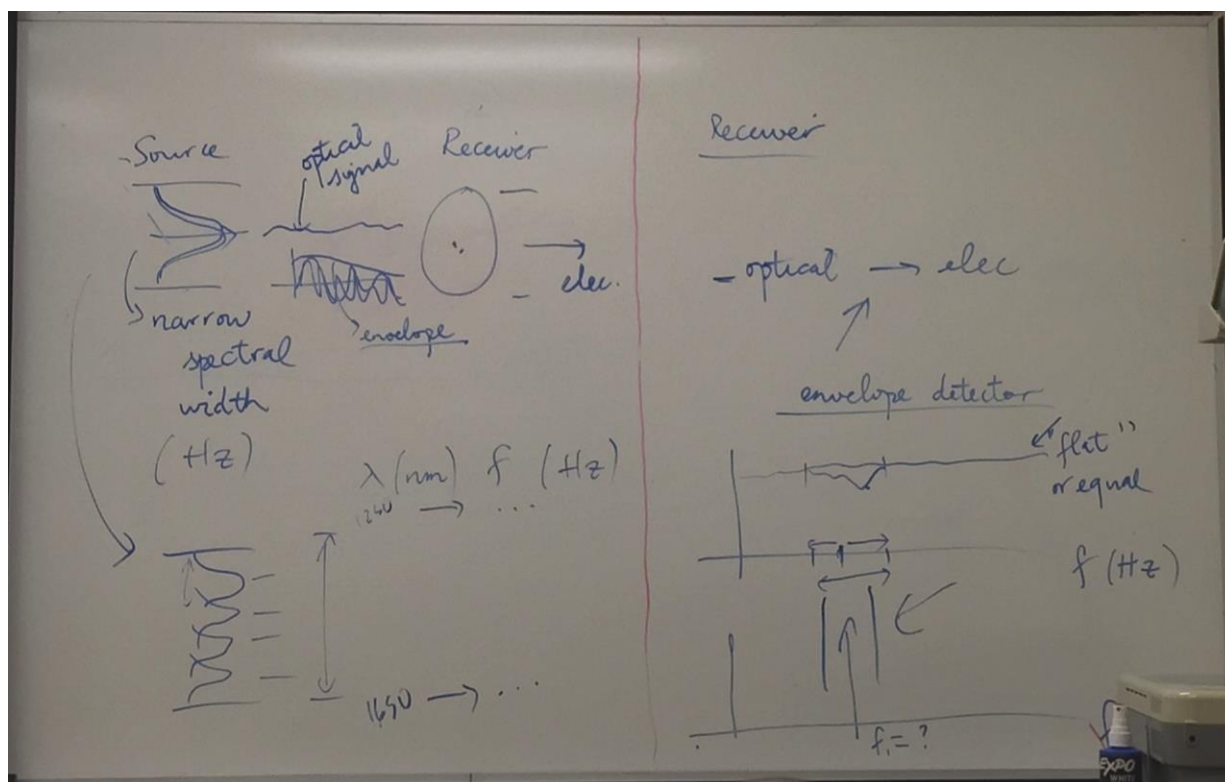 Source
optical
signal
Receiver
elec.
envelope
narrow
spectral
width
(Hz)
λ (nm) f (Hz)
1240 → ...
1650 → ...
Receiver
- optical → elec
envelope detector
"flat"
or equal
f (Hz)
f₁ = ?
f
EXPO